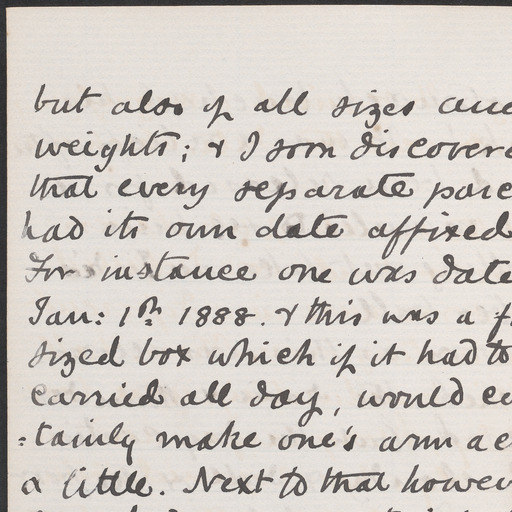 but also of all sizes and
weights; & I soon discovere
that every separate parc
had its own date affixed
For instance one was date
Jan: 1st 1888. & this was a f
sized box which if it had to
carried all day, would ce
=tainly make one's arm ac
a little. Next to that howev